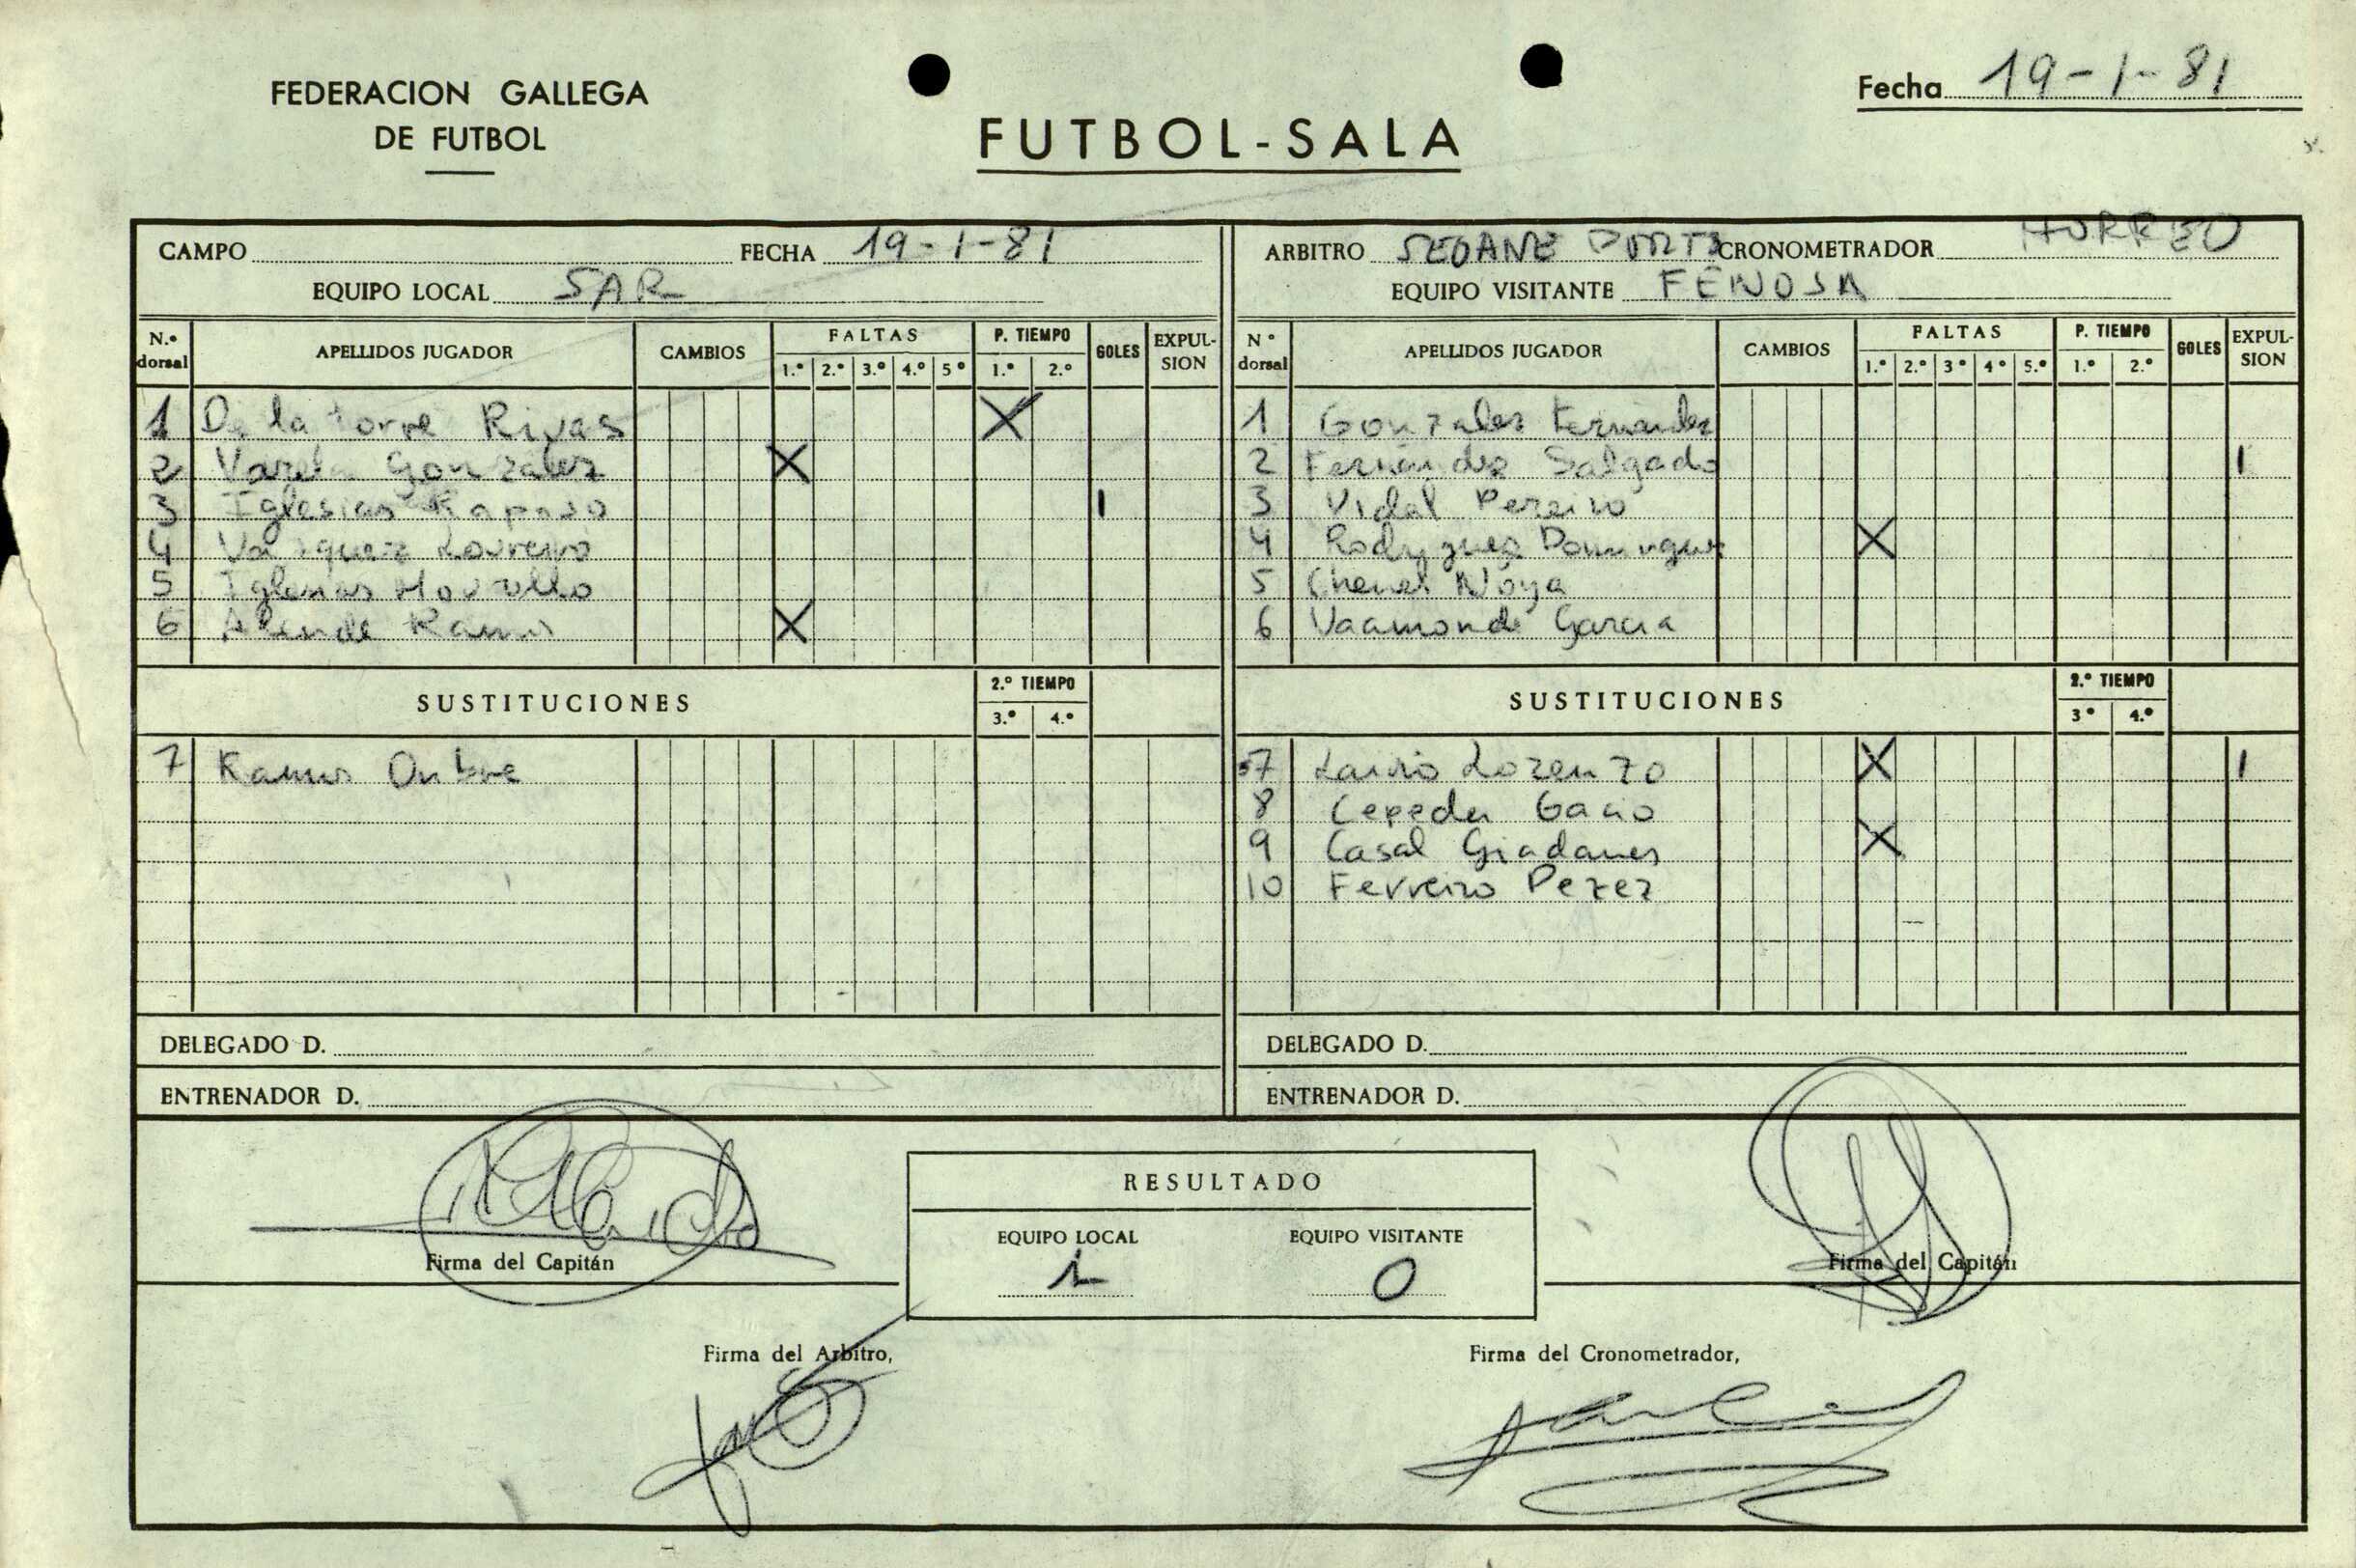 FEDERACION GALLEGA
DE FUTBOL
FUTBOL-SALA
Fecha 19-1-81
CAMPO FECHA 19-1-81
EQUIPO LOCAL SAR
N.º dorsal APELLIDOS JUGADOR CAMBIOS FALTAS 1.º 2.º 3.º 4.º 5º P. TIEMPO 1.º 2.º GOLES EXPUL-SION
1 De la torre Rivas X
2 Varela Gonzalez X
3 Iglesias Raposo 1
4 Vazquez Loureiro
5 Iglesias
6 Ramos X
SUSTITUCIONES 2.º TIEMPO 3.º 4.º
7 Ramos
DELEGADO D.
ENTRENADOR D.
ARBITRO SEOANE CRONOMETRADOR HORREO
EQUIPO VISITANTE FENOSA
Nº dorsal APELLIDOS JUGADOR CAMBIOS FALTAS 1.º 2.º 3º 4º 5.º P. TIEMPO 1.º 2.º GOLES EXPUL-SION
1 Gonzalez Fernandez
2 Fernandez Salgado 1
3 Vidal Pereiro
4 Rodryguez Dominguez X
5 Noya
6 Vaamonde Garcia
SUSTITUCIONES 2.º TIEMPO 3º 4.º
7 Lorenzo X 1
8 Cepeda Gacio
9 Casal Giadanes X
10 Ferreiro Perez
DELEGADO D.
ENTRENADOR D.
RESULTADO
EQUIPO LOCAL EQUIPO VISITANTE
1 0
Firma del Capitán
Firma del Capitán
Firma del Arbitro,
Firma del Cronometrador,